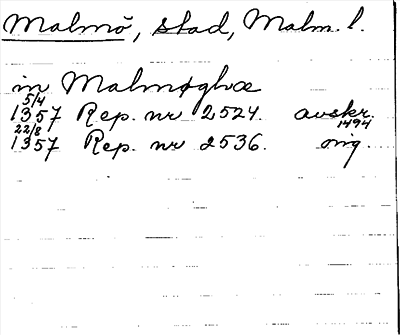 Malmö, stad, Malm. l.
in Malmøghæ
5/4
1357 Rep. nr 2524. avskr.
22/8 1494
1357 Rep. nr 2536. orig.